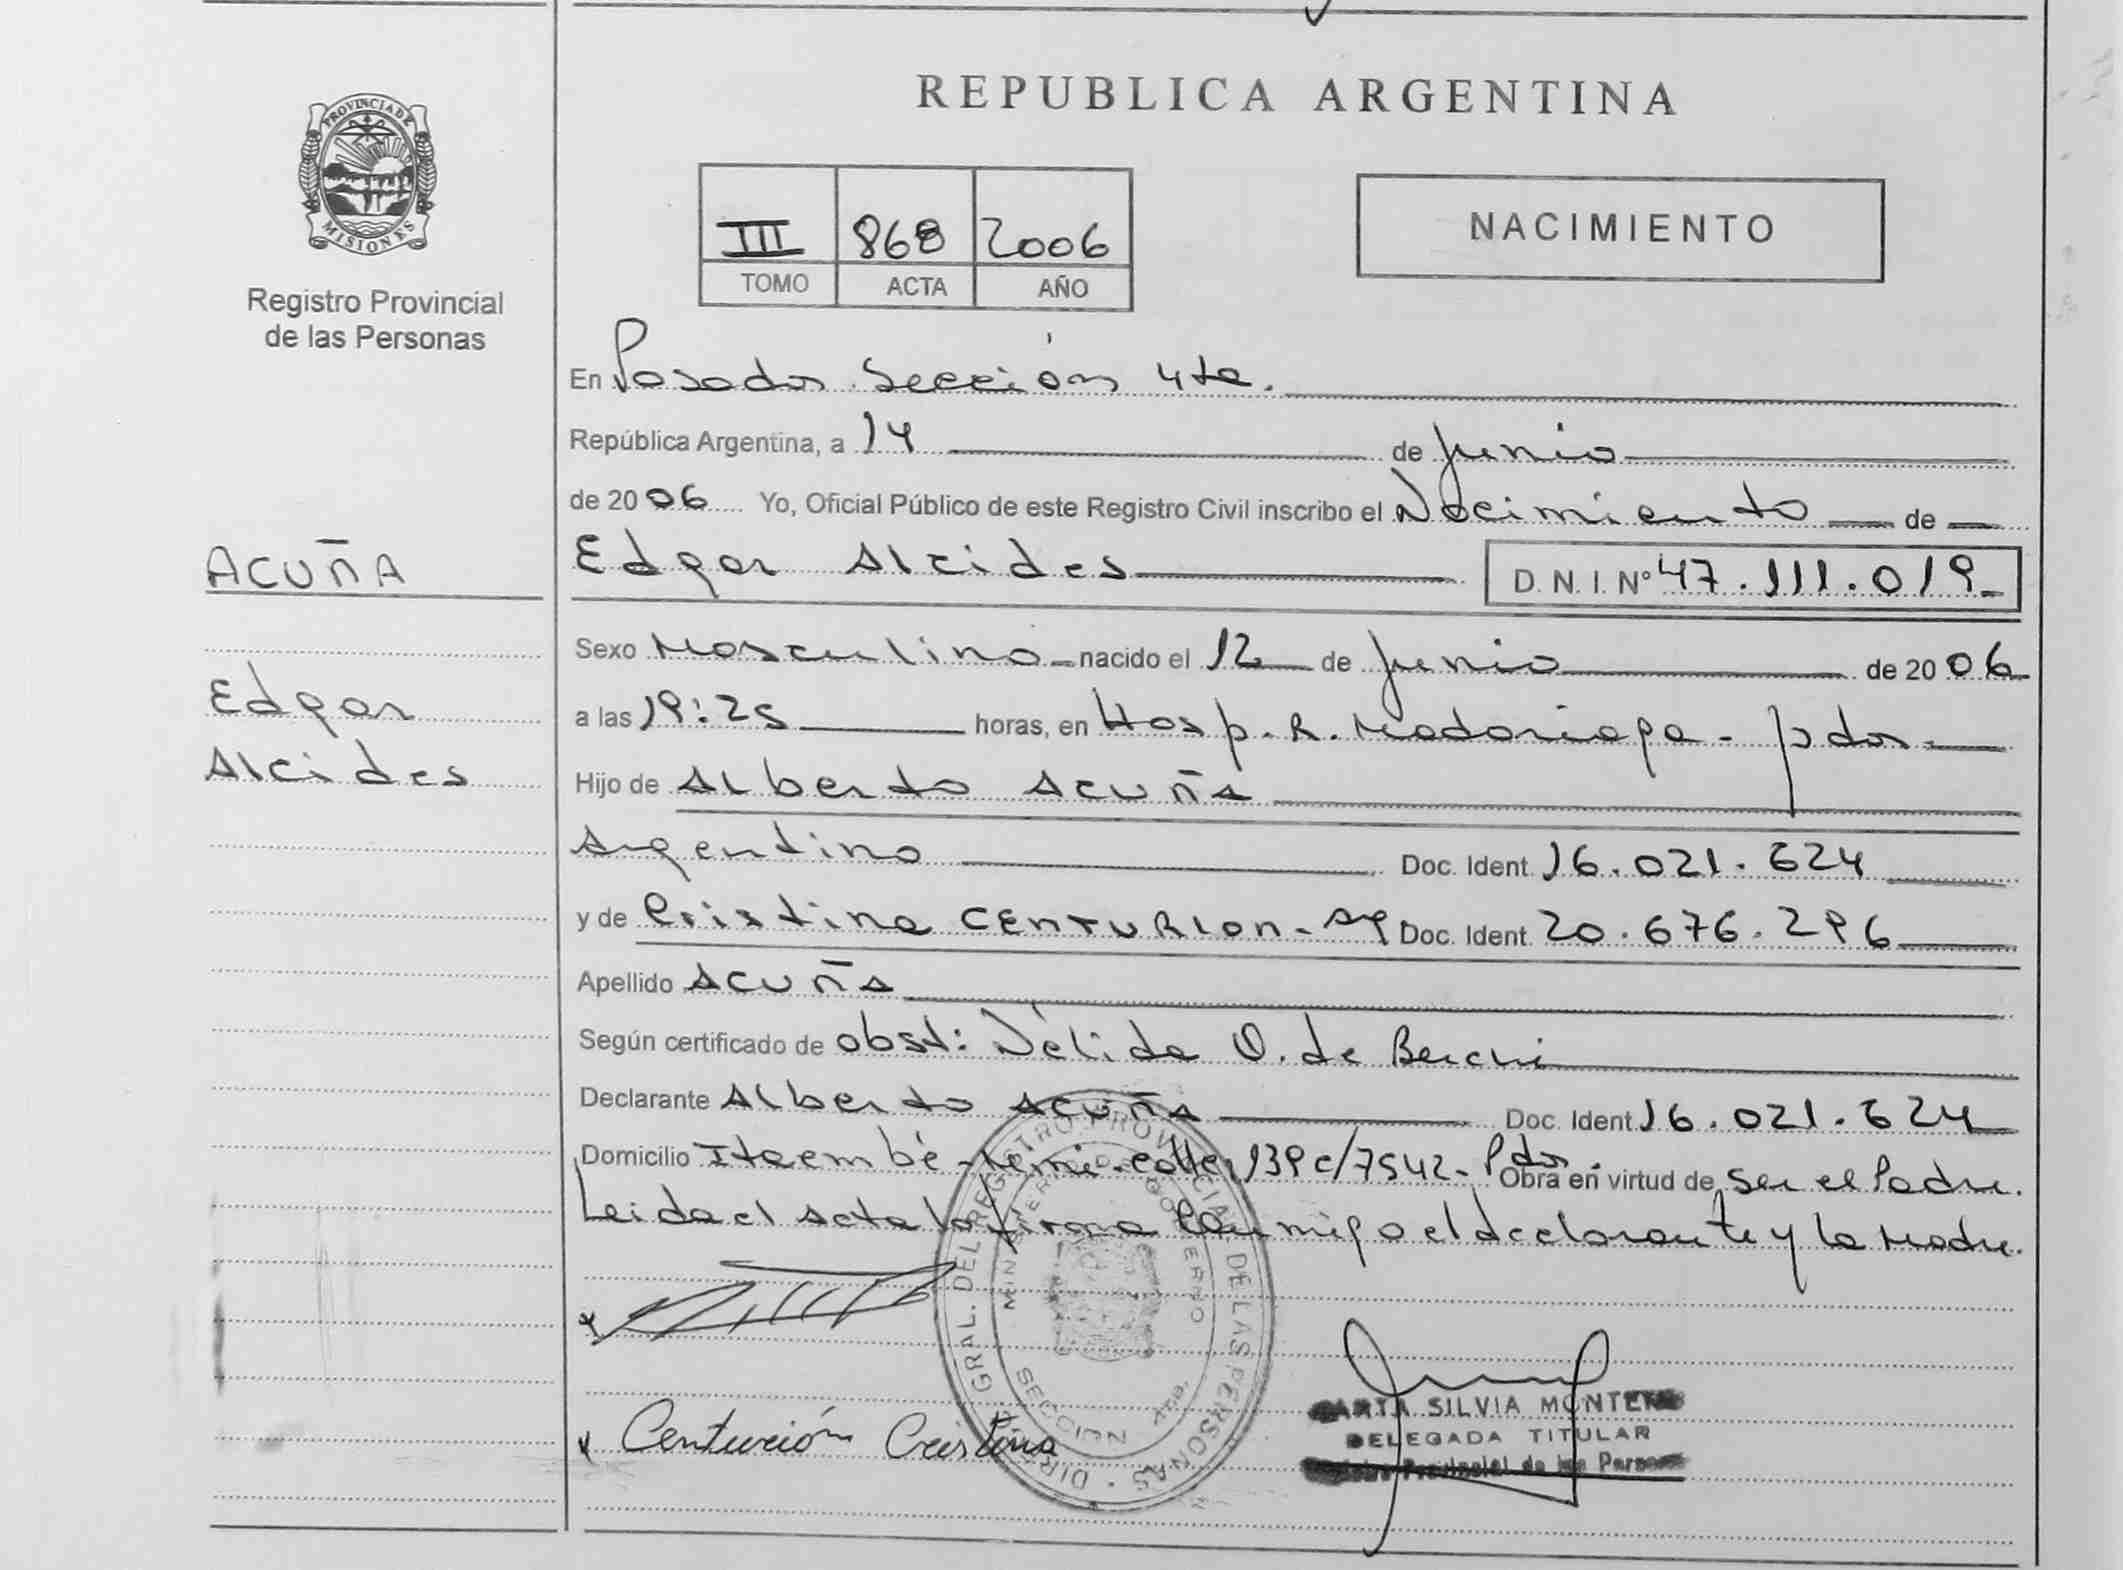 REPUBLICA ARGENTINA
PROVINCIA DE
MISIONES
Registro Provincial
de las Personas
III 868 2006
TOMO ACTA AÑO
NACIMIENTO
En Posadas Sección 4ta.
República Argentina, a 14 de Junio
de 2006 Yo, Oficial Público de este Registro Civil inscribo el Nacimiento de
ACUÑA
Edgar Alcides D. N. I. Nº 47.111.019
Sexo Masculino nacido el 12 de Junio de 2006
Edgar
Alcides
a las 19:25 horas, en Hosp. R. Madariaga - Pdas.
Hijo de Alberto ACUÑA
Argentino Doc. Ident. 16.021.624
y de Cristina CENTURION - Arg Doc. Ident. 20.676.296
Apellido ACUÑA
Según certificado de obst: Nélida O. de
Declarante Alberto ACUÑA Doc. Ident. 16.021.624
Domicilio Itaembé - Miní - Calle 139 c/7542 - Pdas. Obra en virtud de ser el Padre.
Leida el acta la firma Conmigo el declarante y la Madre.
DIREC. GRAL. DEL REGISTRO PROVINCIAL DE LAS PERSONAS
MINISTERIO DE GOBIERNO
SECCION 4TA.
Centurión Cristina
SILVIA
DELEGADA TITULAR
Registro Provincial de las Personas